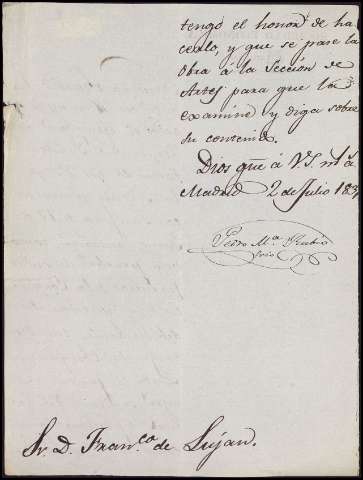 tengo el honor de ha
cerlo, y que se pase la
obra á la Sección de
Artes para que la
examine y diga sobre
su contenido.
Dios gūe á V.S. m.s a.s
Madrid 2 de Julio 183
Pedro M.a Rubio
Srio
Sr. D. Fran.co de Lujan.